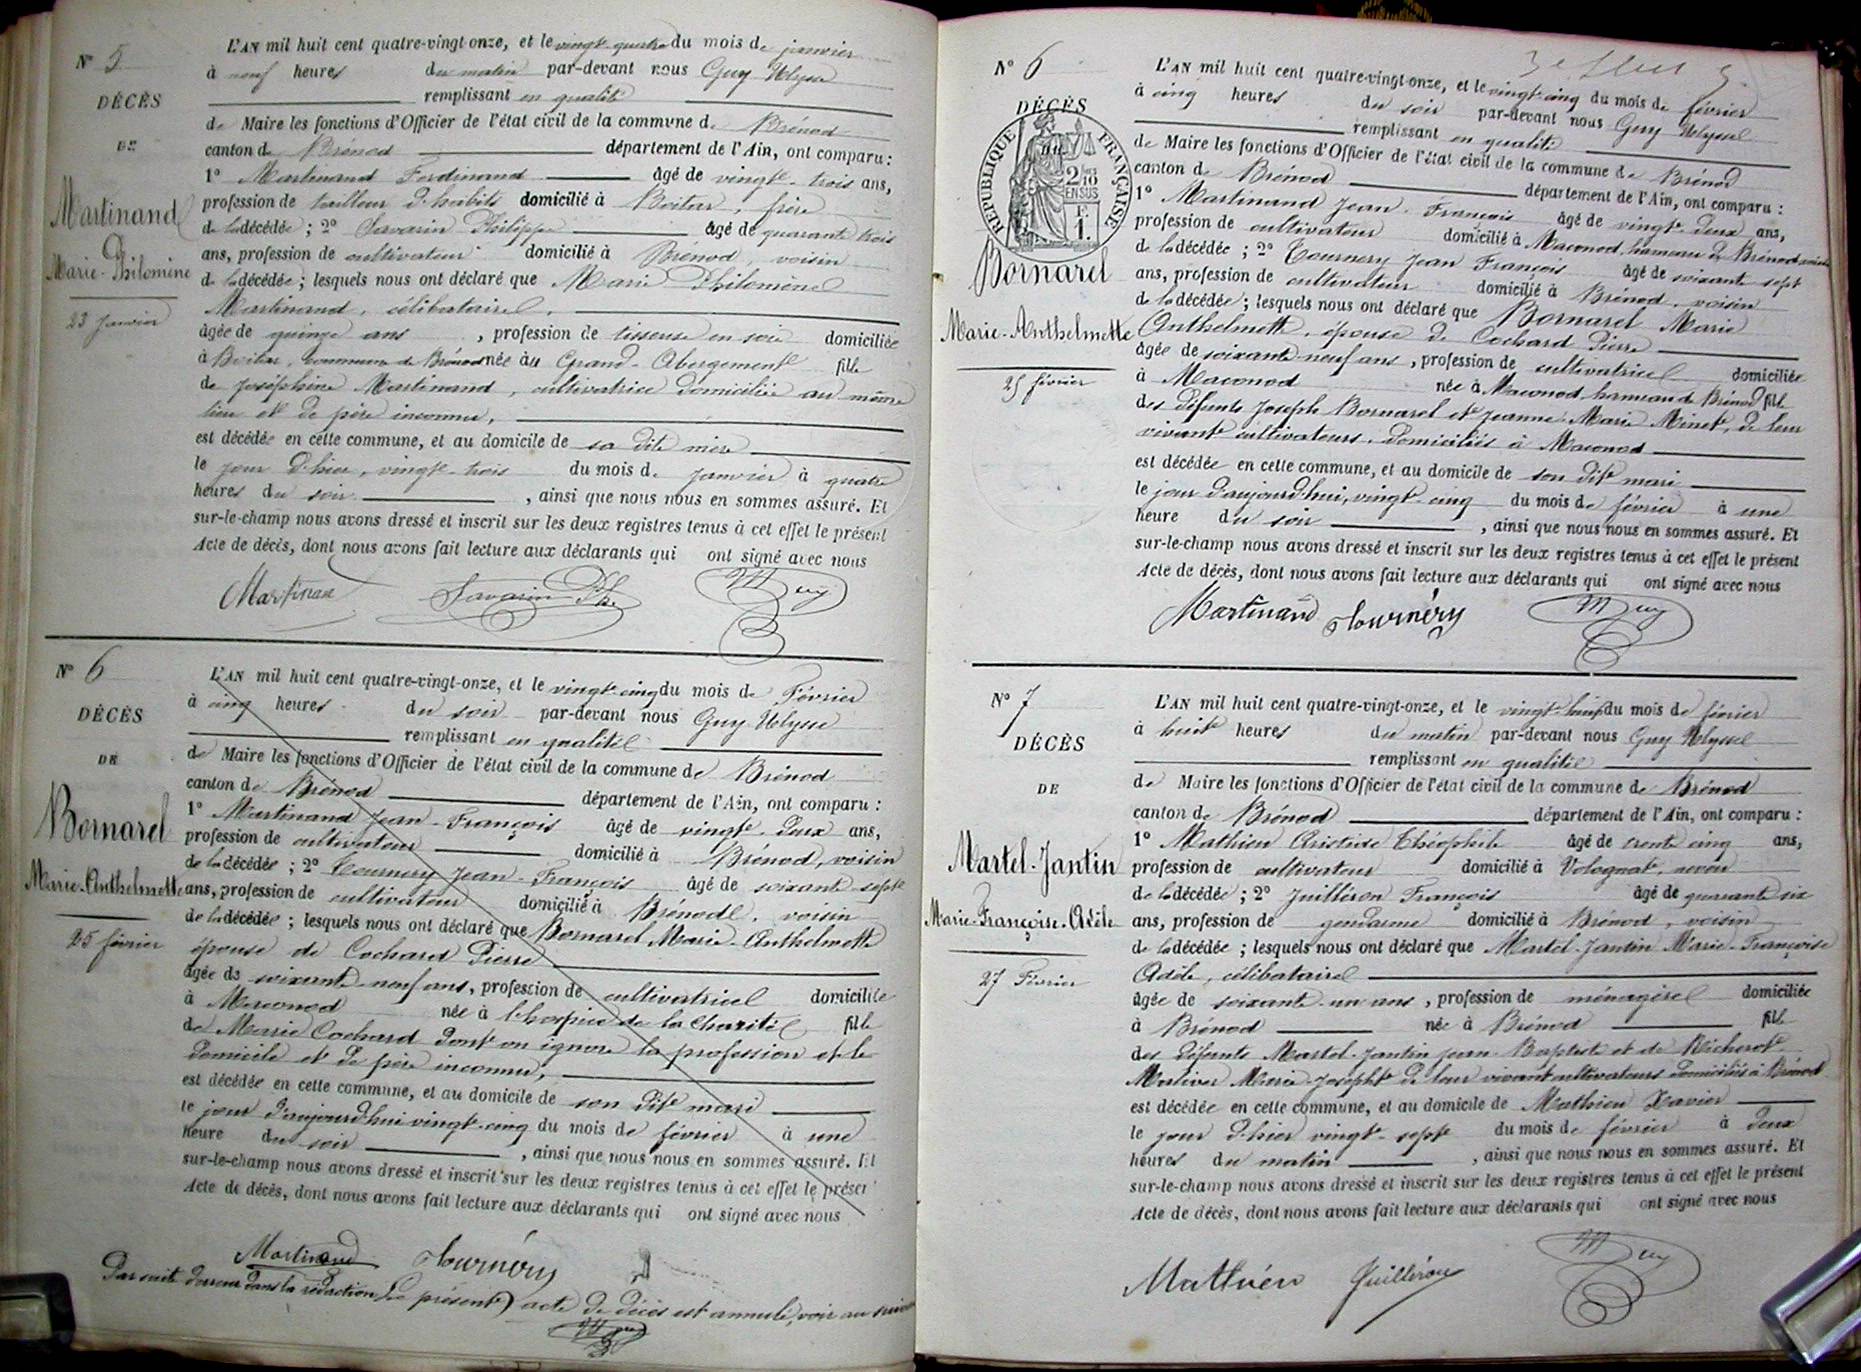 N° 5
DÉCÈS
DE
Martinand
Marie-Philomène
23 Janvier
L'AN mil huit cent quatre-vingt-onze, et le vingt-quatre du mois de janvier
à neuf heures du matin par-devant nous Guy Ulysse
remplissant en qualité
de Maire les fonctions d'Officier de l'état civil de la commune de Brénod
canton de Brénod département de l'Ain, ont comparu :
1° Martinand Ferdinand âgé de vingt-trois ans,
profession de tailleur d'habits domicilié à Boitas, frère
de la décédée ; 2° Savarin Philippe âgé de quarante trois
ans, profession de cultivateur domicilié à Brénod, voisin
de la décédée ; lesquels nous ont déclaré que Marie Philomène
Martinand, célibataire,
âgée de quinze ans , profession de tisseuse en soie domiciliée
à Boitas, commune de Brénod née au Grand-Abergement fille
de Joséphine Martinand, cultivatrice domiciliée au même
lieu et de père inconnu,
est décédée en cette commune, et au domicile de sa dite mère
le jour d'hier, vingt-trois du mois de janvier à quatre
heures du soir , ainsi que nous nous en sommes assuré. Et
sur-le-champ nous avons dressé et inscrit sur les deux registres tenus à cet effet le présent
Acte de décès, dont nous avons fait lecture aux déclarants qui ont signé avec nous
Martinan Savarin Ph. Guy
N° 6
DÉCÈS
DE
Bornarel
Marie-Anthelmette
25 février
L'AN mil huit cent quatre-vingt-onze, et le vingt-cinq du mois de Février
à cinq heures du soir par-devant nous Guy Ulysse
remplissant en qualité
de Maire les fonctions d'Officier de l'état civil de la commune de Brénod
canton de Brénod département de l'Ain, ont comparu :
1° Martinand Jean-François âgé de vingt-deux ans,
profession de cultivateur domicilié à Brénod, voisin
de la décédée ; 2° Tournery Jean-François âgé de soixante-sept
ans, profession de cultivateur domicilié à Brénod, voisin
de la décédée ; lesquels nous ont déclaré que Bornarel Marie-Anthelmette
épouse de Cochard Pierre
âgée de soixante-neuf ans, profession de cultivatrice domiciliée
à Maconod née à l'hospice de la Charité fille
de Marie Cochard dont on ignore la profession et le
domicile et de père inconnu,
est décédée en cette commune, et au domicile de son dit mari
le jour d'aujourd'hui vingt-cinq du mois de février à une
heure du soir , ainsi que nous nous en sommes assuré. Et
sur-le-champ nous avons dressé et inscrit sur les deux registres tenus à cet effet le présent
Acte de décès, dont nous avons fait lecture aux déclarants qui ont signé avec nous
Martinand Tournéry
Par suite d'erreur dans la rédaction, le présent acte de décès est annulé, voir au suivant
Guy
N° 6
DÉCÈS
RÉPUBLIQUE FRANÇAISE
2/10 EN SUS
1 F.
Bornarel
Marie-Anthelmette
25 février
L'AN mil huit cent quatre-vingt-onze, et le vingt-cinq du mois de février
à cinq heures du soir par-devant nous Guy Ulysse
remplissant en qualité
de Maire les fonctions d'Officier de l'état civil de la commune de Brénod
canton de Brénod département de l'Ain, ont comparu :
1° Martinand Jean-François âgé de vingt-deux ans,
profession de cultivateur domicilié à Maconod, hameau de Brénod, voisin
de la décédée ; 2° Tournery Jean François âgé de soixante sept
ans, profession de cultivateur domicilié à Brénod, voisin
de la décédée ; lesquels nous ont déclaré que Bornarel Marie
Anthelmette, épouse de Cochard Pierre
âgée de soixante-neuf ans, profession de cultivatrice domiciliée
à Maconod née à Maconod, hameau de Brénod fille
des défunts Joseph Bornarel et Jeanne-Marie Minet, de leur
vivant cultivateurs, domiciliés à Maconod
est décédée en cette commune, et au domicile de son dit mari
le jour d'aujourd'hui, vingt-cinq du mois de février à une
heure du soir , ainsi que nous nous en sommes assuré. Et
sur-le-champ nous avons dressé et inscrit sur les deux registres tenus à cet effet le présent
Acte de décès, dont nous avons fait lecture aux déclarants qui ont signé avec nous
Martinand Tournéry Guy
N° 7
DÉCÈS
DE
Martel-Jantin
Marie-Françoise-Adèle
27 Février
L'AN mil huit cent quatre-vingt-onze, et le vingt-huit du mois de février
à huit heures du matin par-devant nous Guy Ulysse
remplissant en qualité
de Maire les fonctions d'Officier de l'état civil de la commune de Brénod
canton de Brénod département de l'Ain, ont comparu :
1° Mathieu Aristide Théophile âgé de trente cinq ans,
profession de cultivateur domicilié à Volognat, neveu
de la décédée ; 2° Juilliéron François âgé de quarante six
ans, profession de gendarme domicilié à Brénod, voisin
de la décédée ; lesquels nous ont déclaré que Martel-Jantin Marie-Françoise
Adèle, célibataire
âgée de soixante-un ans, profession de ménagère domiciliée
à Brénod née à Brénod fille
des défunts Martel-Jantin Jean-Baptiste et de Richerot
Marie-Josephte de leur vivant cultivateurs domiciliés à Brénod
est décédée en cette commune, et au domicile de Mathieu Xavier
le jour d'hier vingt-sept du mois de février à deux
heures du matin , ainsi que nous nous en sommes assuré. Et
sur-le-champ nous avons dressé et inscrit sur les deux registres tenus à cet effet le présent
Acte de décès, dont nous avons fait lecture aux déclarants qui ont signé avec nous
Mathieu Juilliéron Guy